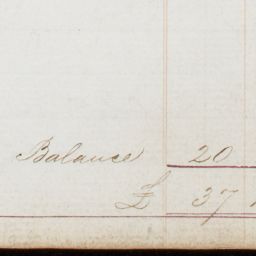 Balance 20
£ 37